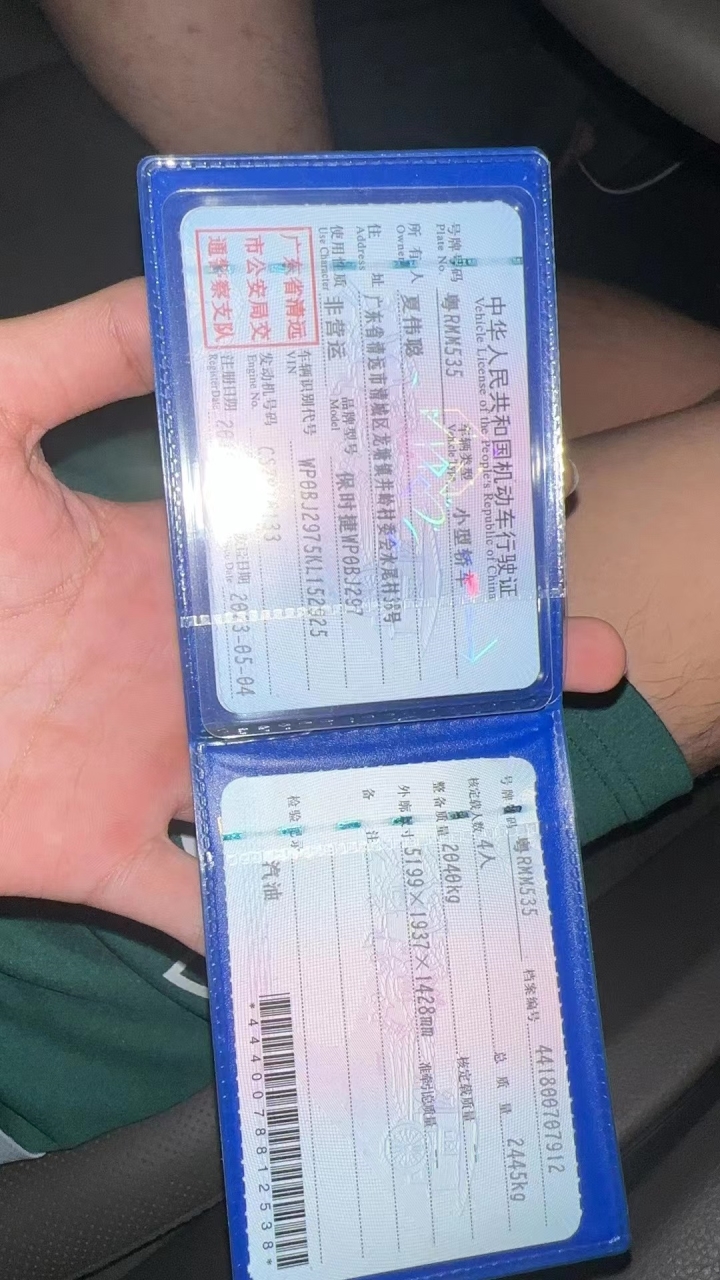 中华人民共和国机动车行驶证
Vehicle License of the People's Republic of China
号牌号码 粤RMM535 车辆类型 小型轿车
Plate No. Vehicle Type
所有人 夏伟聪
Owner
住址 广东省清远市清城区龙塘镇井岭村委会水尾村38号
Address
使用性质 非营运 品牌型号 保时捷WP0BJ297
Use Character Model
广东省清远
市公安局交
通警察支队
车辆识别代号 WP0BJ2975KL152925
VIN
发动机号码
Engine No.
注册日期 发证日期 2023-05-04
Register Date Issue Date
号牌号码 粤RMM535 档案编号 441800707912
核定载人数 4人 总质量 2445kg
整备质量 2040kg 核定载质量 --
外廓尺寸 5199×1937×1428mm 准牵引总质量 --
备注
检验记录
汽油
*4440078812538*